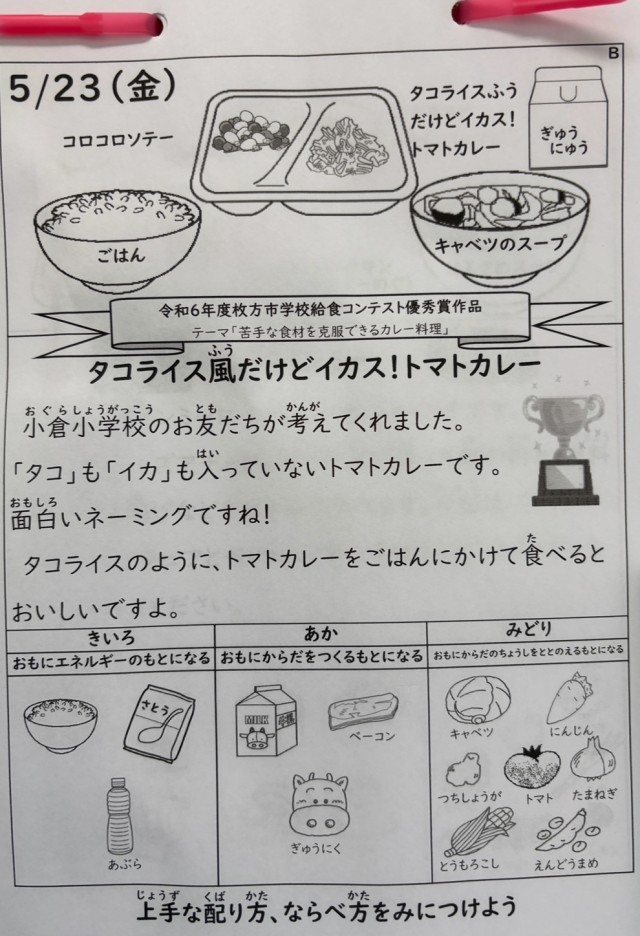 B
5/23(金)
コロコロソテー
タコライスふう
だけどイカス!
トマトカレー
ぎゅう
にゅう
ごはん
キャベツのスープ
令和6年度枚方市学校給食コンテスト優秀賞作品
テーマ「苦手な食材を克服できるカレー料理」
ふう
タコライス風だけどイカス!トマトカレー
おぐらしょうがっこう とも かんが
小倉小学校のお友だちが考えてくれました。
はい
「タコ」も「イカ」も入っていないトマトカレーです。
おもしろ
面白いネーミングですね!
た
タコライスのように、トマトカレーをごはんにかけて食べると
おいしいですよ。
きいろ
あか
みどり
おもにエネルギーのもとになる
おもにからだをつくるもとになる
おもにからだのちょうしをととのえるもとになる
さとう
あぶら
MILK
ベーコン
ぎゅうにく
キャベツ
にんじん
つちしょうが
トマト
たまねぎ
とうもろこし
えんどうまめ
じょうず くば かた かた
上手な配り方、ならべ方をみにつけよう